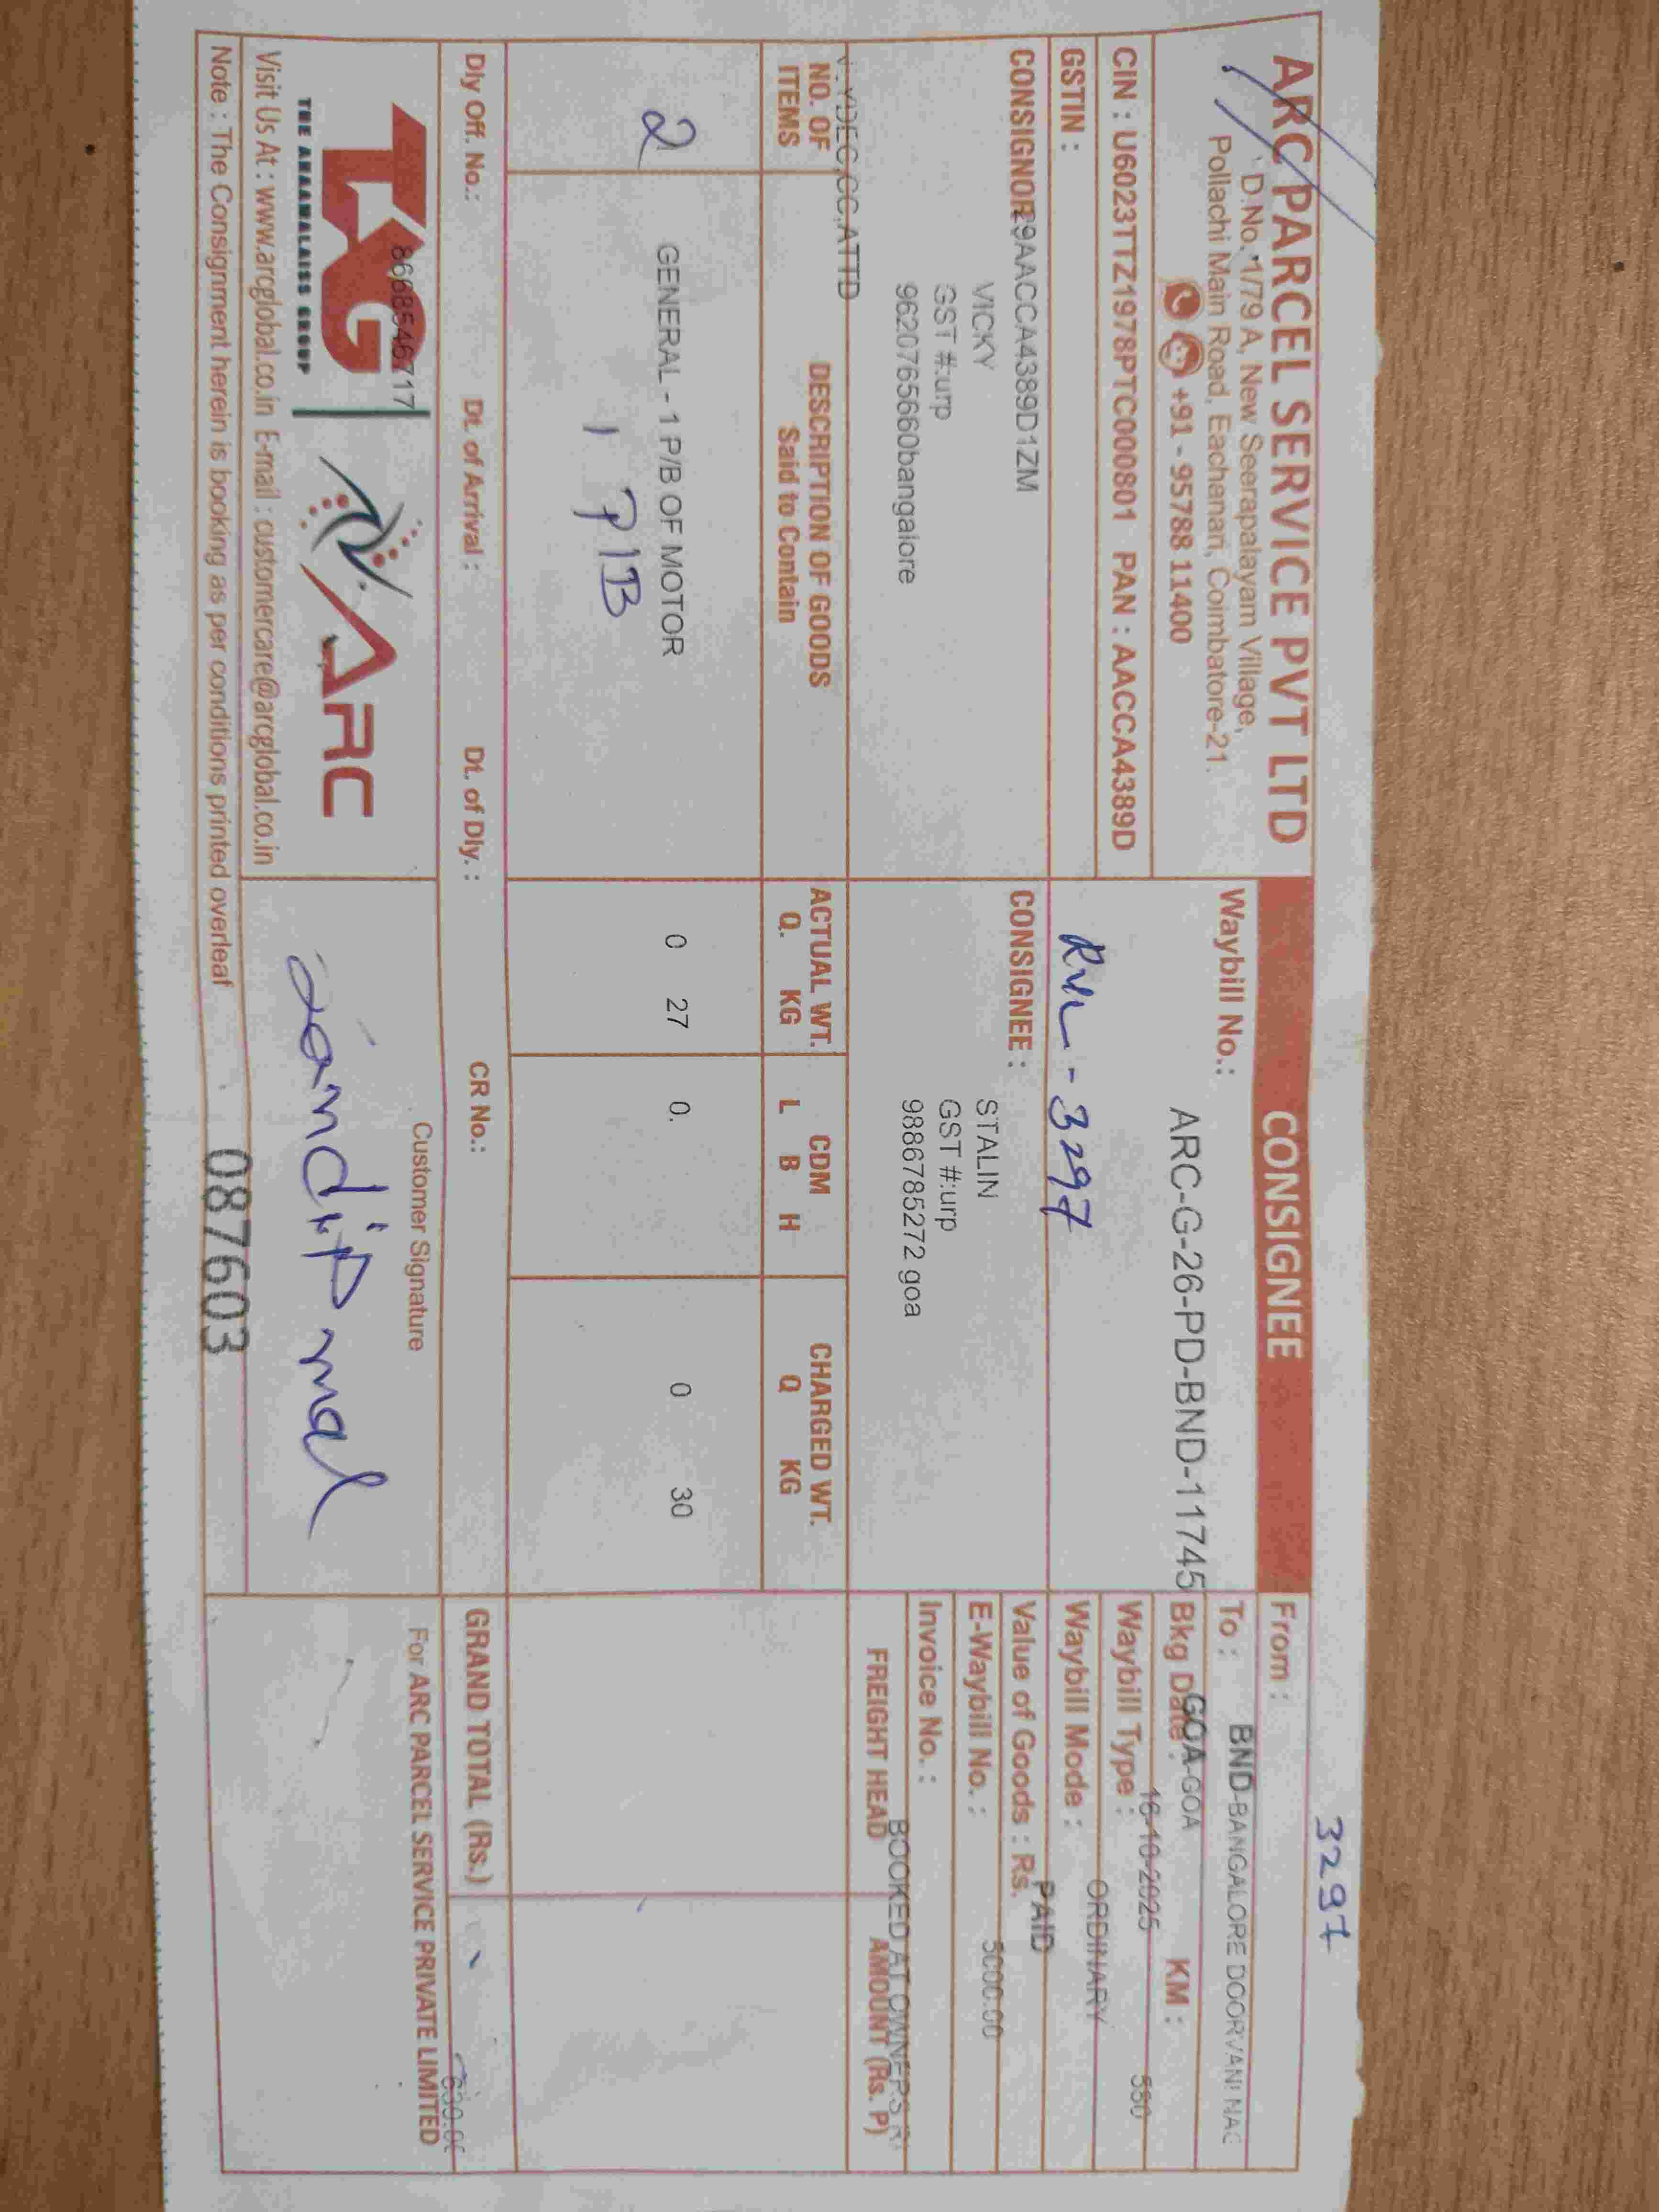 3297
ARC PARCEL SERVICE PVT LTD
D.No. 1/79 A, New Seerapalayam Village,
Pollachi Main Road, Eachanari, Coimbatore-21.
+91 - 95788 11400
CIN : U6023TTZ1978PTC000801 PAN : AACCA4389D
GSTIN :
29AACCA4389D1ZM
CONSIGNEE
Waybill No.:
ARC-G-26-PD-BND-11745
- 3297
From :
BND-BANGALORE DOORVANI NAG
To :
GOA-GOA
Bkg Date :
16-10-2025
KM :
550
Waybill Type :
ORDINARY
Waybill Mode :
PAID
Value of Goods : Rs.
5000.00
E-Waybill No. :
Invoice No. :
BOOKED AT OWNERS
CONSIGNOR
VICKY
GST #:urp
9620765660bangalore
CONSIGNEE :
STALIN
GST #:urp
9886785272 goa
DEC,CC,ATTD
NO. OF ITEMS
DESCRIPTION OF GOODS
Said to Contain
ACTUAL WT.
Q. KG
CDM
L B H
CHARGED WT.
Q KG
FREIGHT HEAD
AMOUNT (Rs. P)
2
GENERAL - 1 P/B OF MOTOR
1 P/B
0 27
0.
0 30
Dly Off. No.:
Dt. of Arrival :
Dt. of Dly. :
CR No.:
GRAND TOTAL (Rs.)
8668546717
TAG
THE ANAMALAISS GROUP
ARC
Customer Signature
Sandip mal
For ARC PARCEL SERVICE PRIVATE LIMITED
Visit Us At : www.arcglobal.co.in E-mail : customercare@arcglobal.co.in
Note : The Consignment herein is booking as per conditions printed overleaf
087603